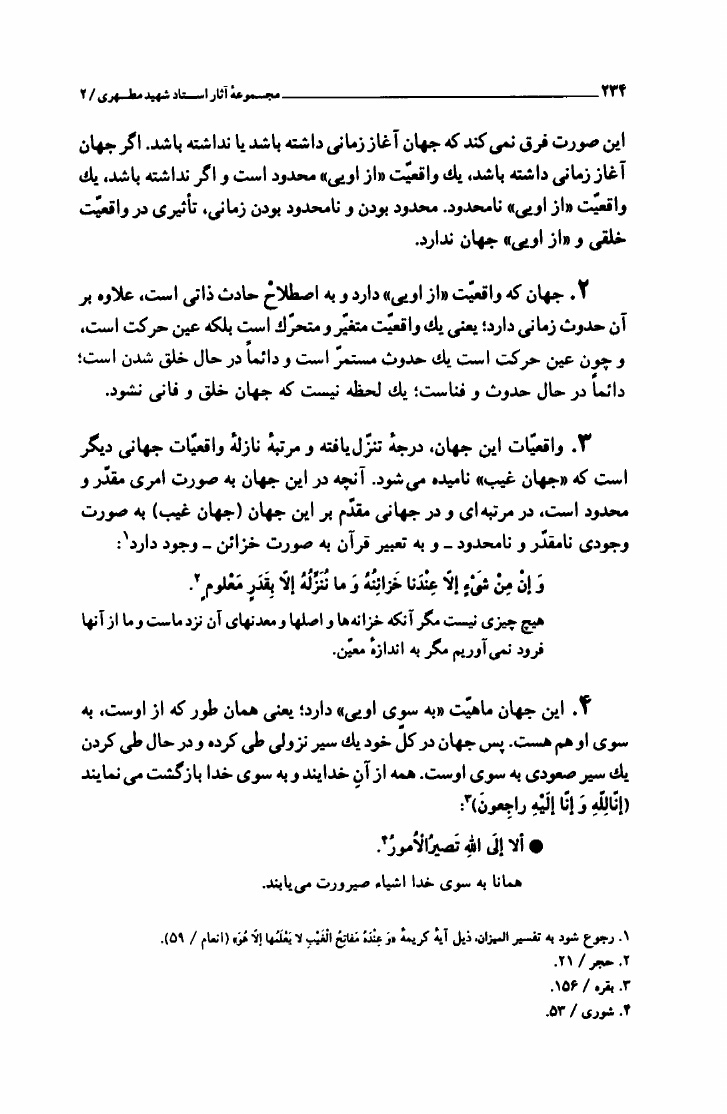 ۲۳۴ مجموعهٔ آثار استاد شهید مطهری / ۲
این صورت فرق نمی‌کند که جهان آغاز زمانی داشته باشد یا نداشته باشد. اگر جهان
آغاز زمانی داشته باشد، یك واقعیّت «از اویی» محدود است و اگر نداشته باشد، یك
واقعیّت «از اویی» نامحدود. محدود بودن و نامحدود بودن زمانی، تأثیری در واقعیّت
خلقی و «از اویی» جهان ندارد.
۲. جهان که واقعیّت «از اویی» دارد و به اصطلاح حادث ذاتی است، علاوه بر
آن حدوث زمانی دارد؛ یعنی یك واقعیّت متغیّر و متحرّك است بلکه عین حرکت است،
و چون عین حرکت است یك حدوث مستمرّ است و دائماً در حال خلق شدن است؛
دائماً در حال حدوث و فناست؛ یك لحظه نیست که جهان خلق و فانی نشود.
۳. واقعیّات این جهان، درجهٔ تنزّل‌یافته و مرتبهٔ نازلهٔ واقعیّات جهانی دیگر
است که «جهان غیب» نامیده می‌شود. آنچه در این جهان به صورت امری مقدّر و
محدود است، در مرتبه‌ای و در جهانی مقدّم بر این جهان (جهان غیب) به صورت
وجودی نامقدّر و نامحدود ـ و به تعبیر قرآن به صورت خزائن ـ وجود دارد۱:
وَ اِنْ مِنْ شَیْءٍ اِلّا عِنْدَنا خَزائِنُهُ وَ ما نُنَزِّلُهُ اِلّا بِقَدَرٍ مَعْلومٍ۲.
هیچ چیزی نیست مگر آنکه خزانه‌ها و اصلها و معدنهای آن نزد ماست و ما از آنها
فرود نمی‌آوریم مگر به اندازهٔ معیّن.
۴. این جهان ماهیّت «به سوی اویی» دارد؛ یعنی همان طور که از اوست، به
سوی او هم هست. پس جهان در کلّ خود یك سیر نزولی طی کرده و در حال طی کردن
یك سیر صعودی به سوی اوست. همه از آنِ خدایند و به سوی خدا بازگشت می‌نمایند
(اِنّالِلّهِ وَ اِنّا اِلَیْهِ راجِعونَ)۳:
● اَلا اِلَی اللّهِ تَصیرُالْاُمورُ۴.
همانا به سوی خدا اشیاء صیرورت می‌یابند.
۱. رجوع شود به تفسیر المیزان، ذیل آیهٔ کریمهٔ «وَ عِنْدَهُ مَفاتِحُ الْغَیْبِ لا یَعْلَمُها اِلّا هُوَ» (انعام / ۵۹).
۲. حجر / ۲۱.
۳. بقره / ۱۵۶.
۴. شوری / ۵۳.